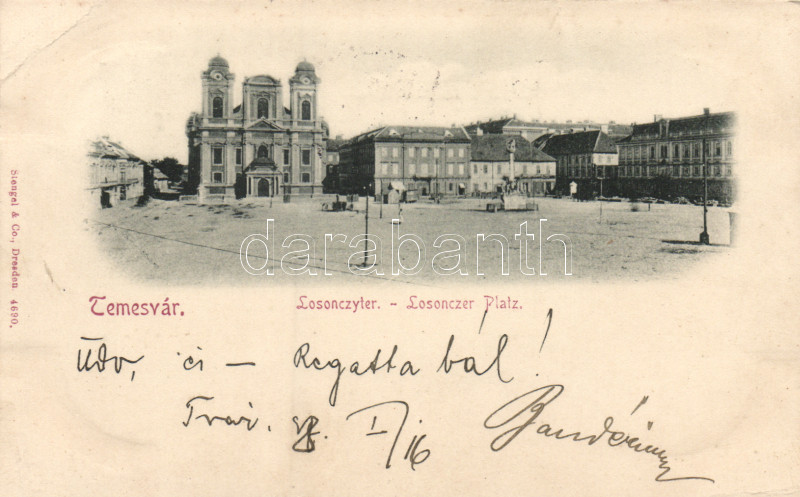 Stengel & Co., Dresden 4690.
darabanth
Temesvár.
Losonczyter. - Losonczer Platz.
Üdv, ici — Regatta bál!
I/16